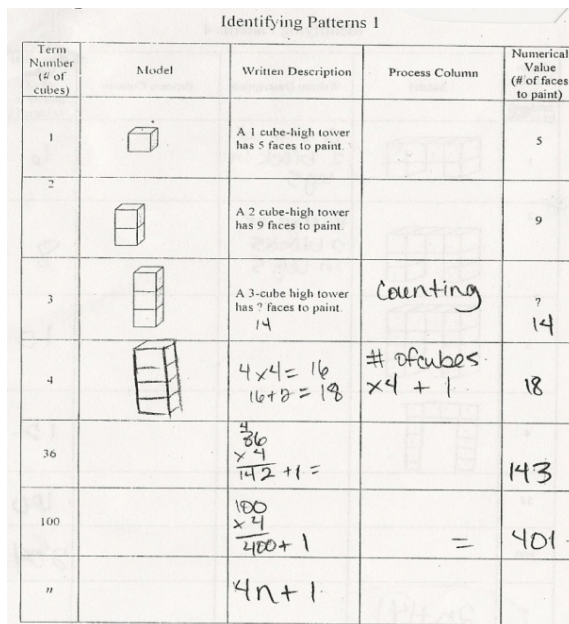 Identifying Patterns 1
Term
Number
(# of
cubes)
Model
Written Description
Process Column
Numerical
Value
(# of faces
to paint)
1
A 1 cube-high tower
has 5 faces to paint.
5
2
A 2 cube-high tower
has 9 faces to paint.
9
3
A 3-cube high tower
has ? faces to paint.
14
Counting
?
14
4
4×4= 16
16+2 = 18
# of cubes
×4 + 1
18
36
4
36
× 4
142 +1 =
143
100
100
× 4
400+ 1
=
401
n
4n+1